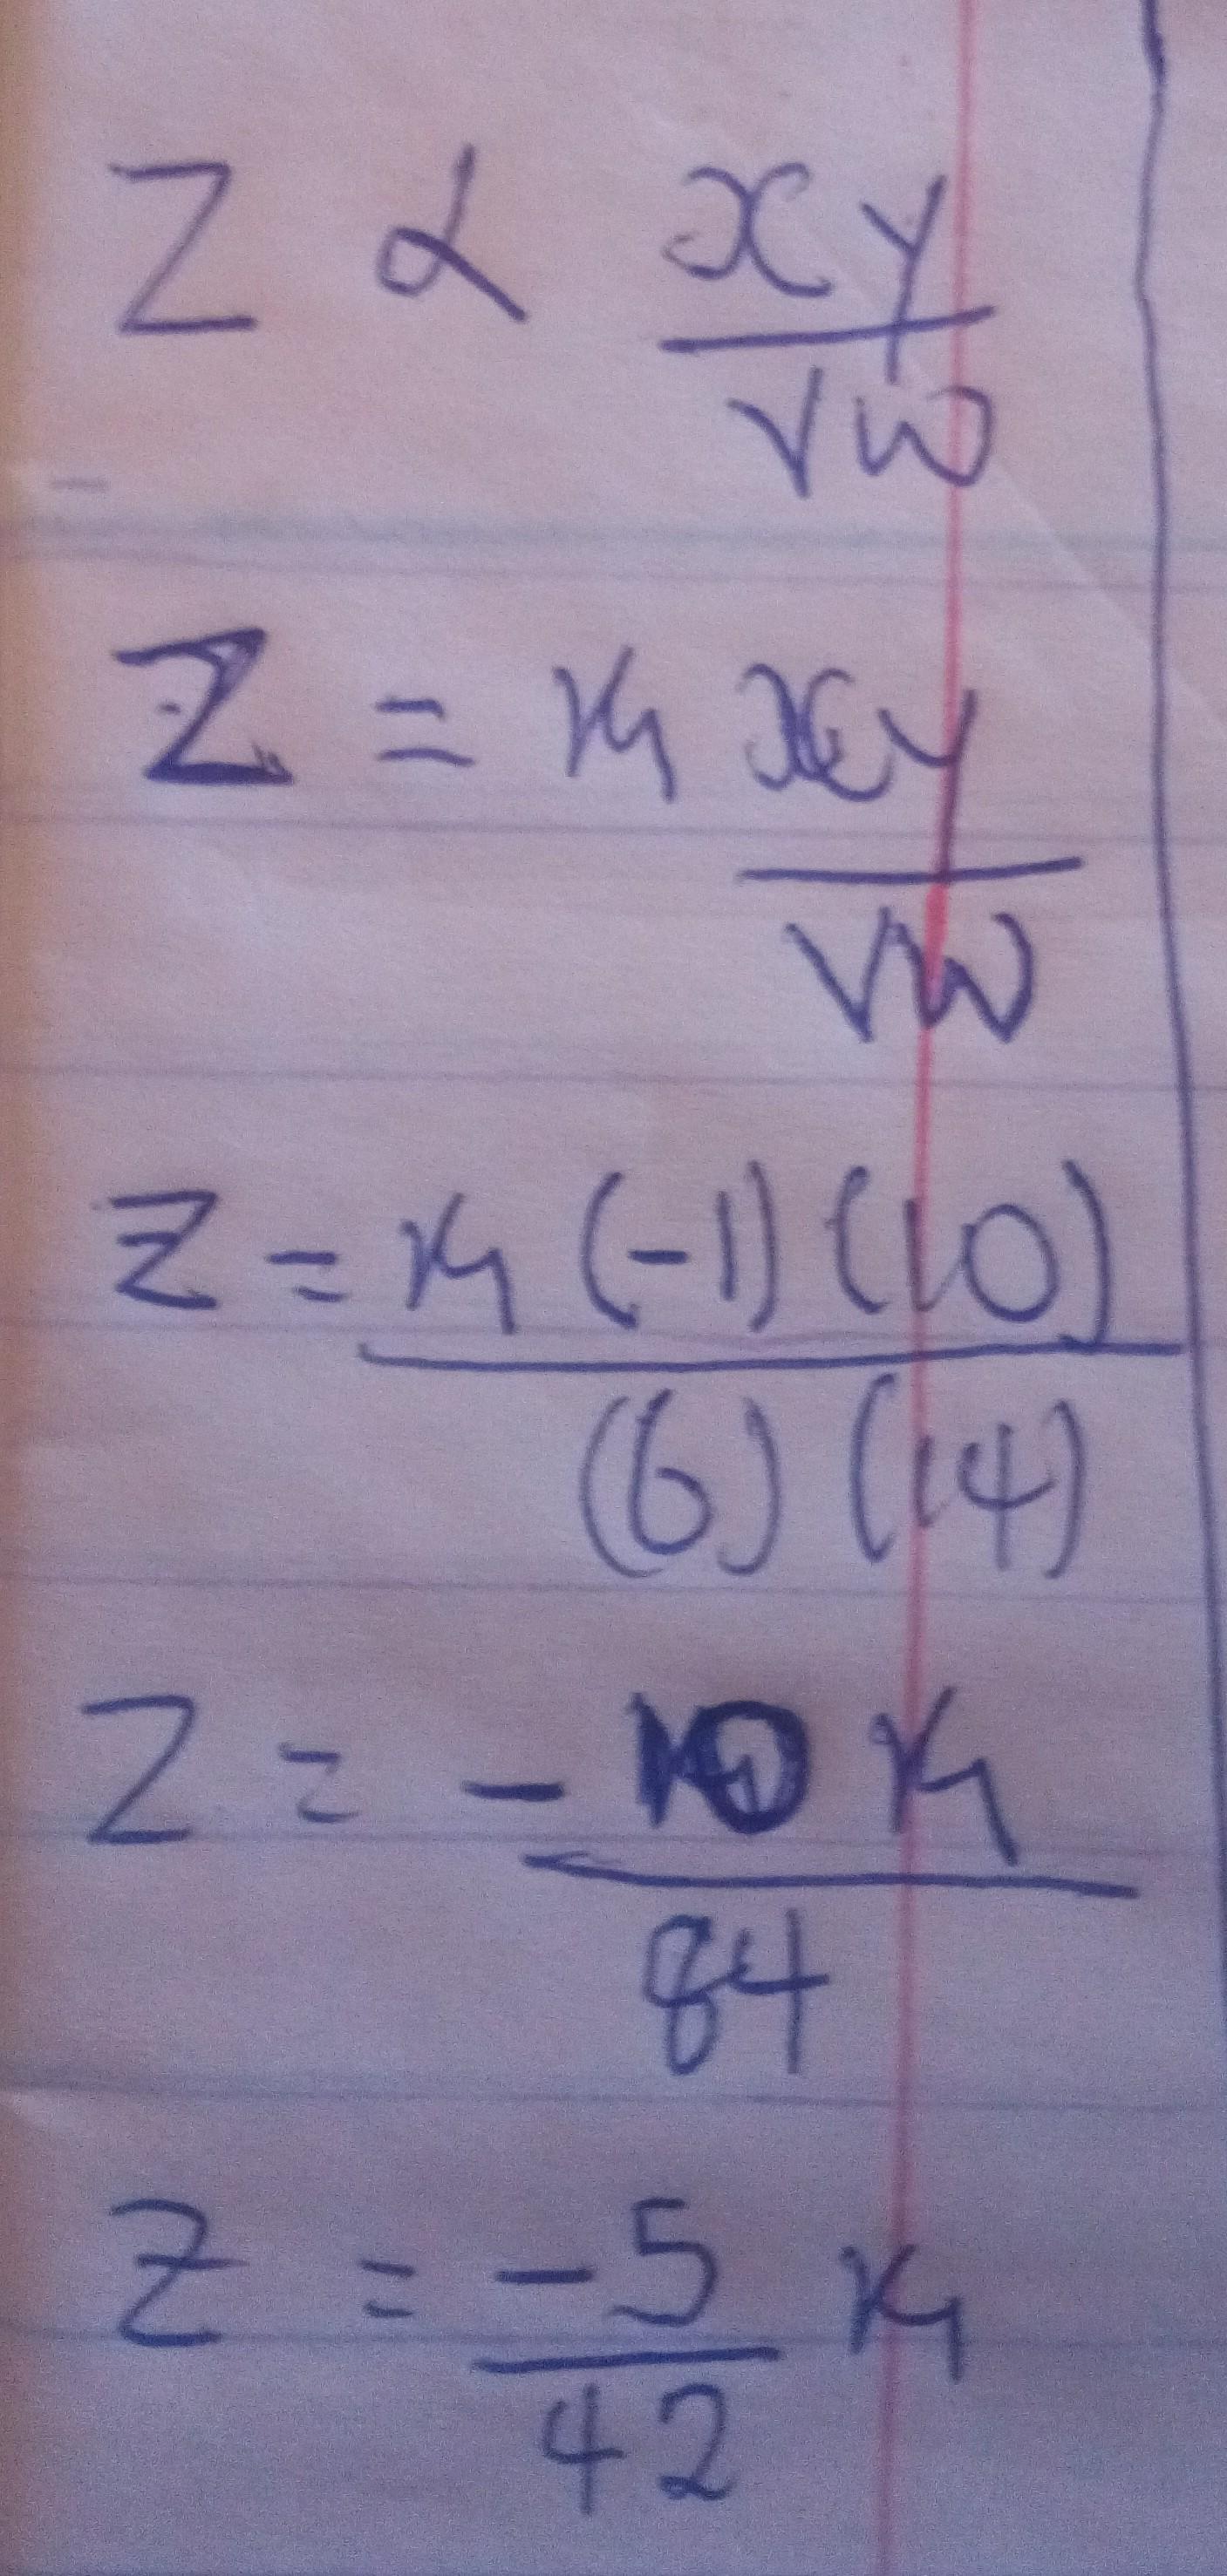 Z α xy
√w
Z = k xy
√w
Z = k (-1) (10)
(6) (14)
Z = - 10 k
84
Z = -5 k
42